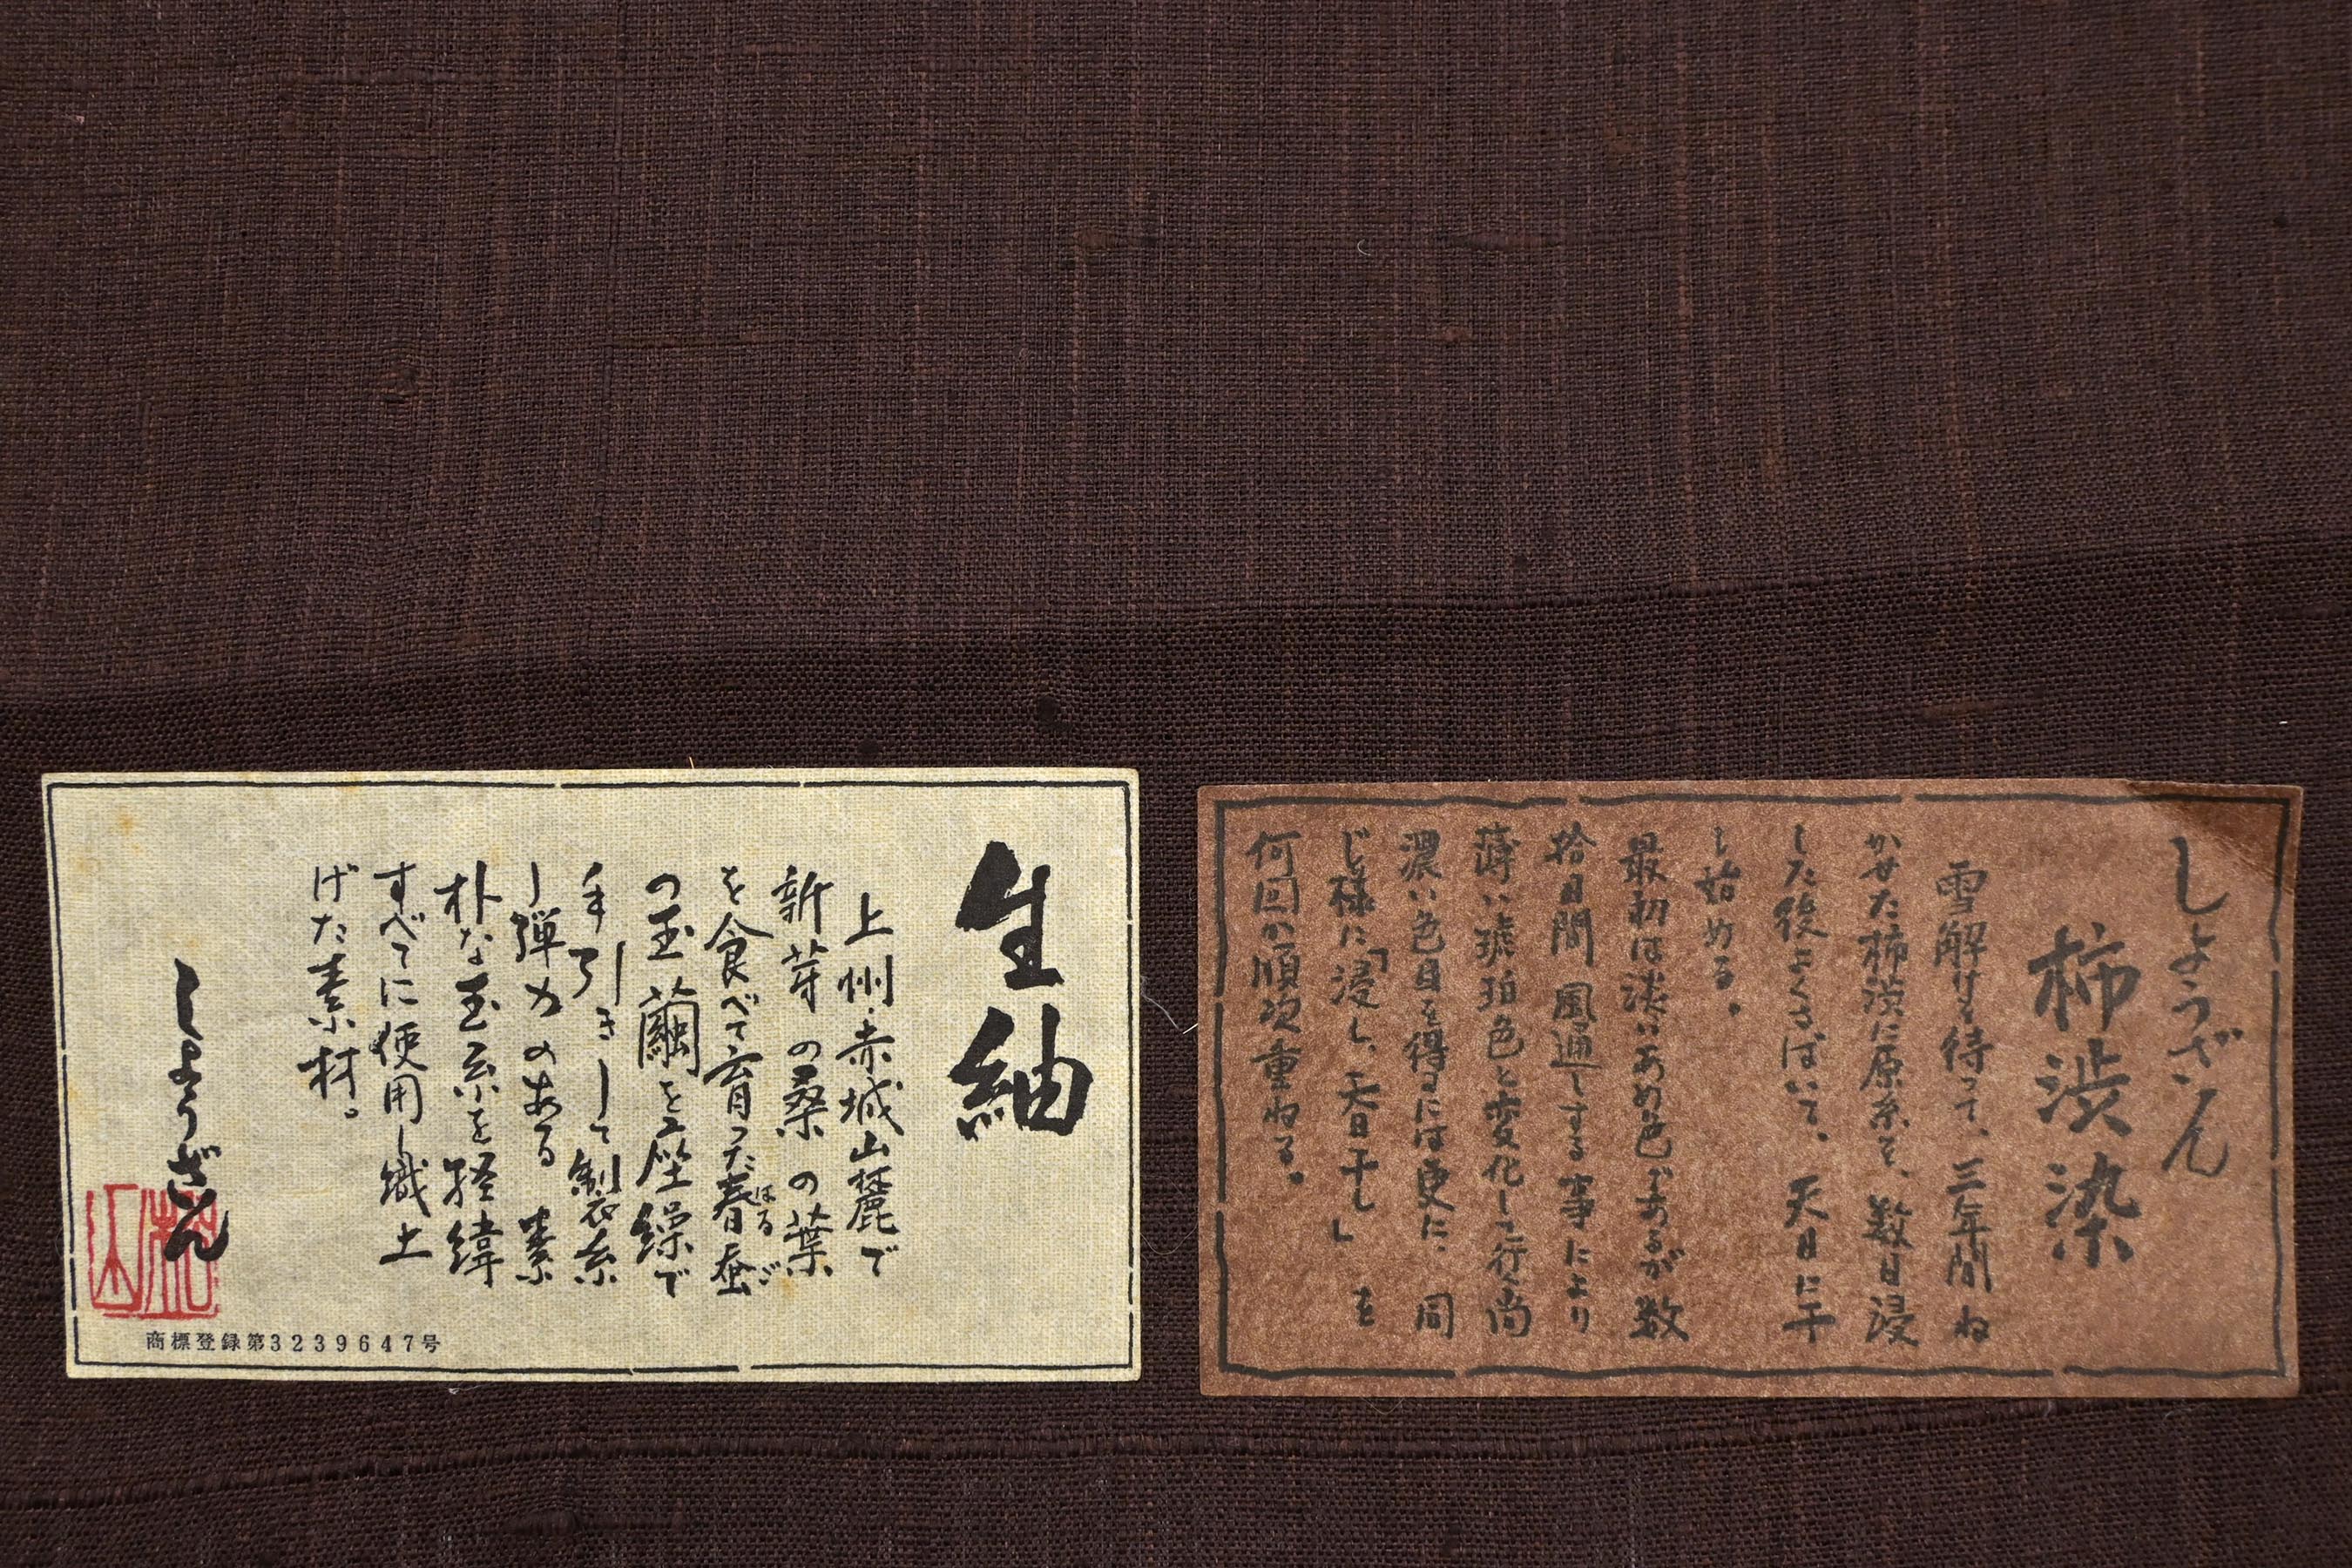 しょうざん
柿渋染
雪解けを待って、三年間ね
かせた柿渋に原糸を、数日浸
した後よくさばいて、天日に干
し始める。
最初は淡いあめ色であるが数
拾日間風通しする事により
薄い琥珀色と変化して行く尚
濃い色目を得るには更に、同
じ様に「浸し、天日干し」を
何回か順次重ねる。
生紬
上州・赤城山麓で
新芽の桑の葉
はるご
を食べて育った春蚕
の玉繭を座繰で
手引きして製糸
し弾力のある素
朴な玉糸を経緯
すべてに使用し織上
げた素材。
しょうざん
松山
商標登録第3239647号